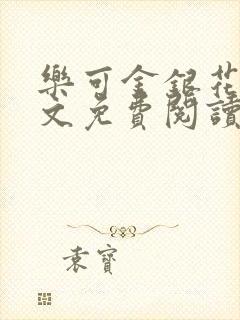 樂可金銀花
文免費閱讀
袁寶